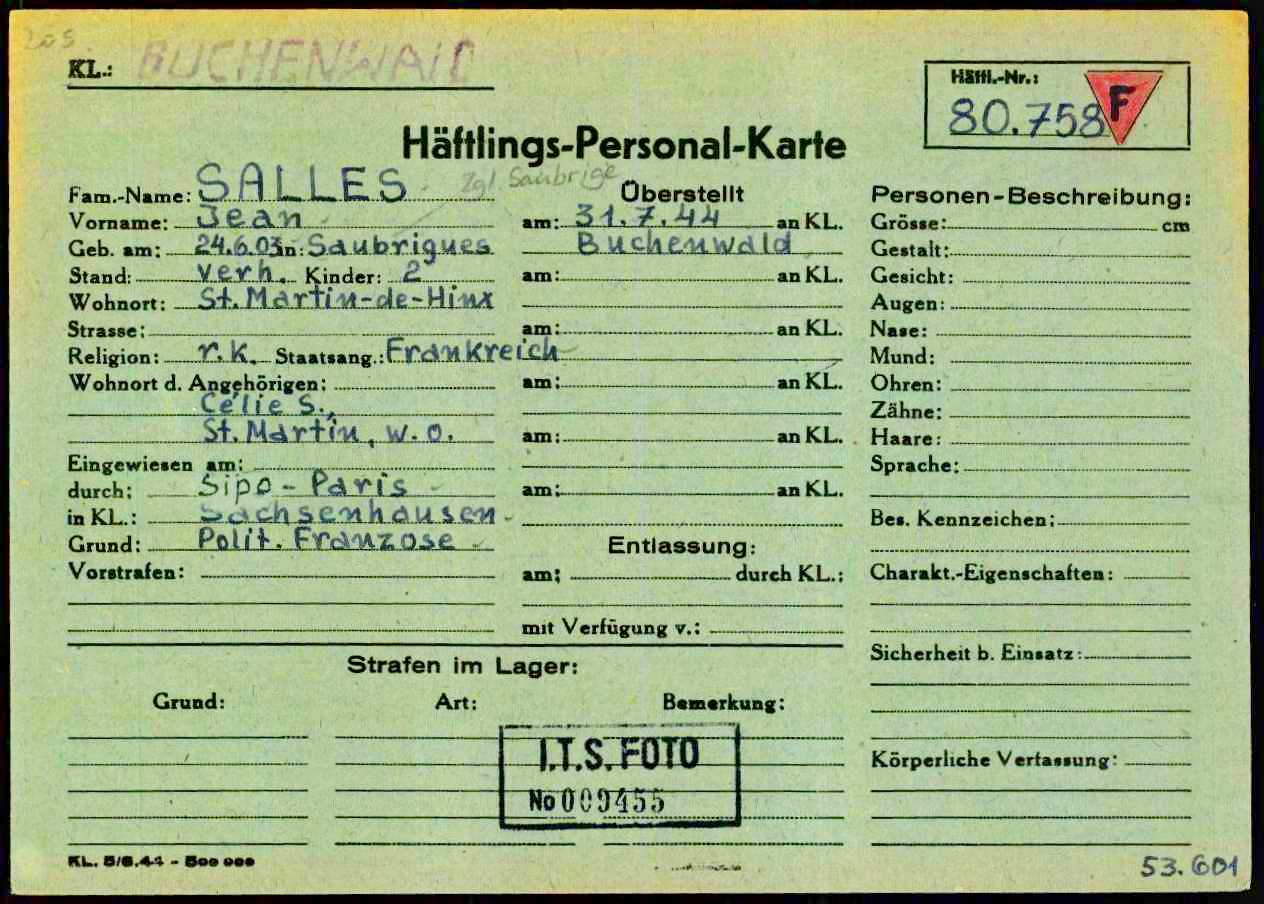 205
KL.: BUCHENWALD
Häftl.-Nr.:
80.758 F
Häftlings-Personal-Karte
Fam.-Name: SALLES
Zgl. Saubrige
Vorname: Jean
Geb. am: 24.6.03 in: Saubrigues
Stand: verh. Kinder: 2
Wohnort: St. Martin-de-Hinx
Strasse:
Religion: r.k. Staatsang.: Frankreich
Wohnort d. Angehörigen:
Célie S.,
St. Martin, w.o.
Eingewiesen am:
durch: Sipo - Paris
in KL.: Sachsenhausen
Grund: Polit. Franzose
Vorstrafen:
Überstellt
am: 31.7.44 an KL.
Buchenwald
am: an KL.
am: an KL.
am: an KL.
am: an KL.
am: an KL.
Entlassung:
am: durch KL.:
mit Verfügung v.:
Personen-Beschreibung:
Grösse: cm
Gestalt:
Gesicht:
Augen:
Nase:
Mund:
Ohren:
Zähne:
Haare:
Sprache:
Bes. Kennzeichen:
Charakt.-Eigenschaften:
Sicherheit b. Einsatz:
Körperliche Verfassung:
Strafen im Lager:
Grund: Art: Bemerkung:
I.T.S. FOTO
No 009455
KL. 5/6.44 - 500 000
53.601